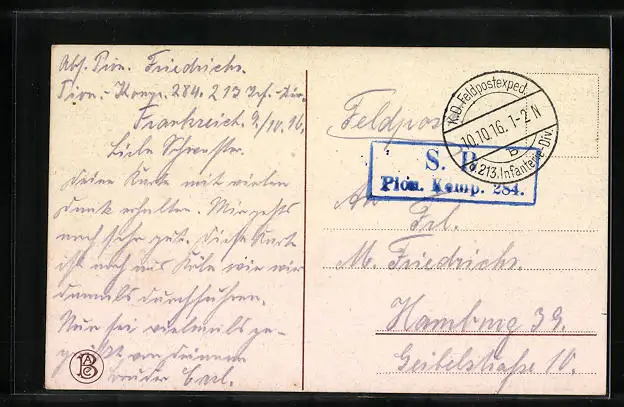 Abs. Pion. Friedrichs.
Pion.-Komp. 284. 213 Inf.-Div.
Frankreich 9/10.16.
Liebe Schwester.
Deine Karte mit vielen
Dank erhalten. Mir gehts
noch sehr gut. Diese Karte
ist noch aus Köln wie wir
damals durchfuhren.
Nun sei vielmals ge-
grüßt von Deinem
Bruder Carl.
Feldpost
K.D. Feldpostexped.
10.10.16. 1-2 N
b
d. 213. Infanterie-Div.
S. B.
Pion. Komp. 284.
An
Frl.
M. Friedrichs.
Hamburg 39.
Geibelstraße 10.